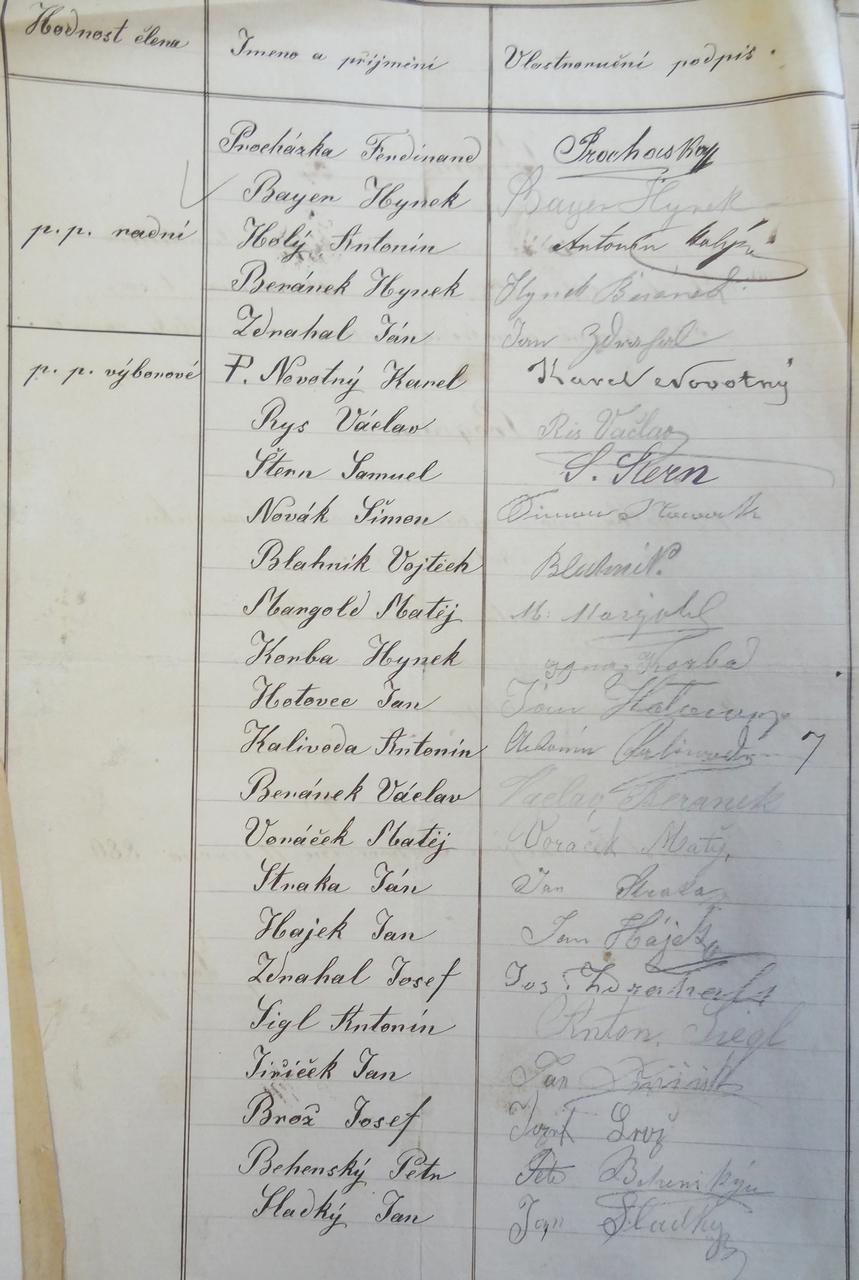 Hodnost člena Jmeno a přijmení Vlastnoruční podpis.
Procházka Ferdinand Prochaska
Bayer Hynek Bayer Hynek
p. p. radní Holý Antonín Antonín Holý
Beránek Hynek Hynek Beránek
Zdrahal Ján Jan Zdrahal
p. p. výborové P. Novotný Karel Karel Novotný
Rys Václav Ris Vačlav
Štern Samuel S. Stern
Novák Šimon
Blahnik Vojtěch Blahnik.
Margold Matěj M: Margold
Korba Hynek Korba
Hotovec Jan Ján
Kalivoda Antonín Antonín Kalivoda 7
Beránek Václav Vaclav Beranek
Voráček Matěj Voraček Matěj,
Straka Ján Jan Straka
Hajek Jan Jan Hájek
Zdrahal Josef Jos. Zdrahal
Sigl Antonín Anton. Siegl
Jiřiček Jan Jan
Brož Josef Josef Brož
Behenský Petr Petr
Sladký Jan Jan Sladký